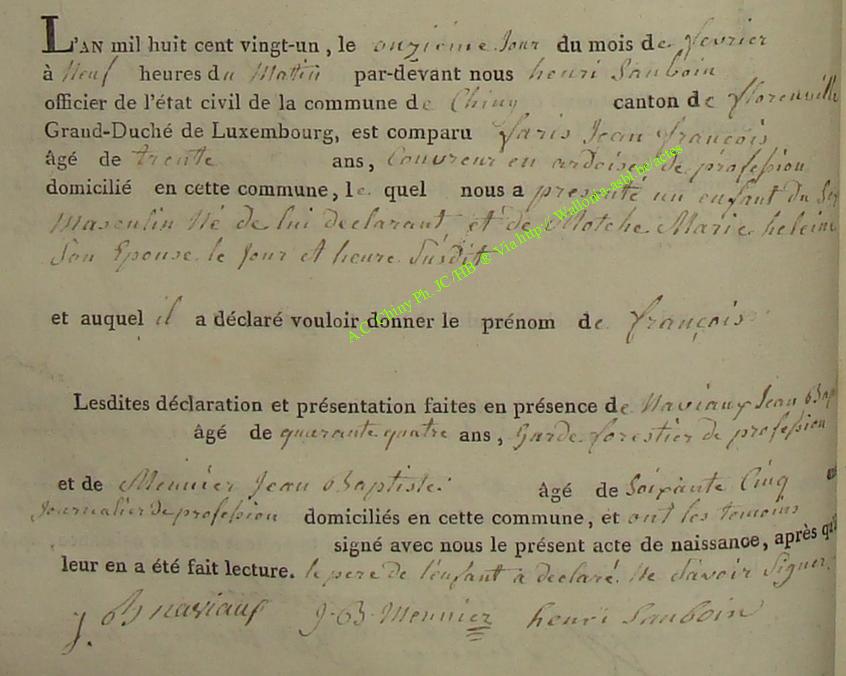 L'AN mil huit cent vingt-un, le onzième Jour du mois de fevrier
à Neuf heures du Matin par-devant nous henri Sauboin
officier de l'état civil de la commune de Chiny canton de florenville
Grand-Duché de Luxembourg, est comparu faris Jean françois
âgé de trente ans, Couvreur en ardoise de profession
domicilié en cette commune, le quel nous a presenté un enfant du Sex
Masculin Né de lui declarant et de Motche Marie heleine
Son Epouse le Jour et heure Susdit
A.C. Chiny Ph. JC /HB @ Via http:// Wallonia-asbl be/actes
et auquel il a déclaré vouloir donner le prénom de françois
Lesdites déclaration et présentation faites en présence de Naviaux Jean Bap
âgé de quarante quatre ans, Garde forestier de profession
et de Meunier Jean Baptiste âgé de Soixante Cinq
Journalier de profession domiciliés en cette commune, et ont les temoins
signé avec nous le présent acte de naissance, après qu'il
leur en a été fait lecture. le pere de l'enfant a declaré Ne Savoir Signer.
J. B naviaux J-B-Meunier henri Sauboin